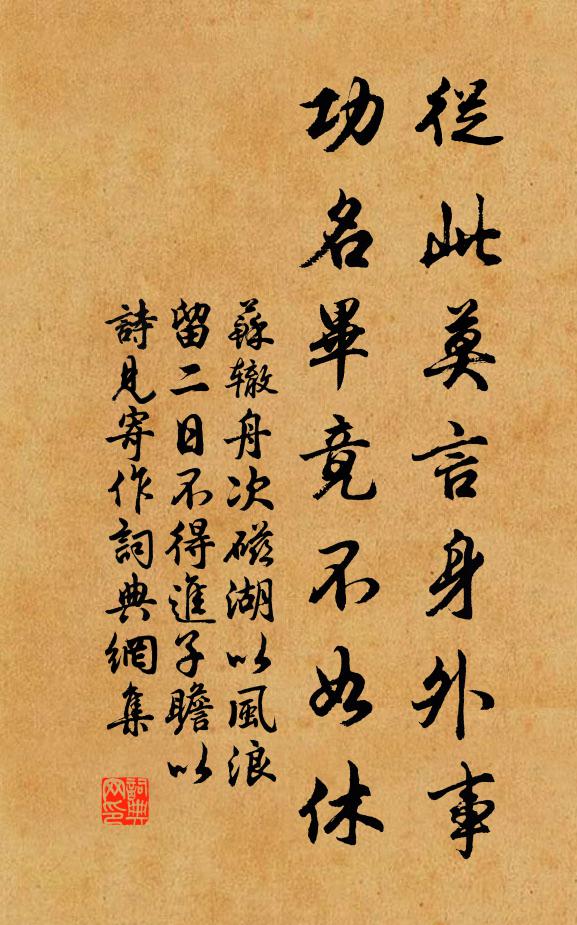 從此莫言身外事
功名畢竟不如休
蘇辙舟次磁湖以風浪
留二日不得進子瞻以
詩見寄作詞典網集
詞典网印